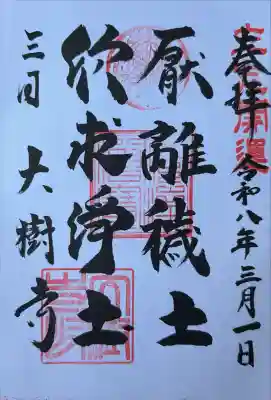 奉拝 令和八年三月一日
厭離穢土
欣求浄土
三河 大樹寺